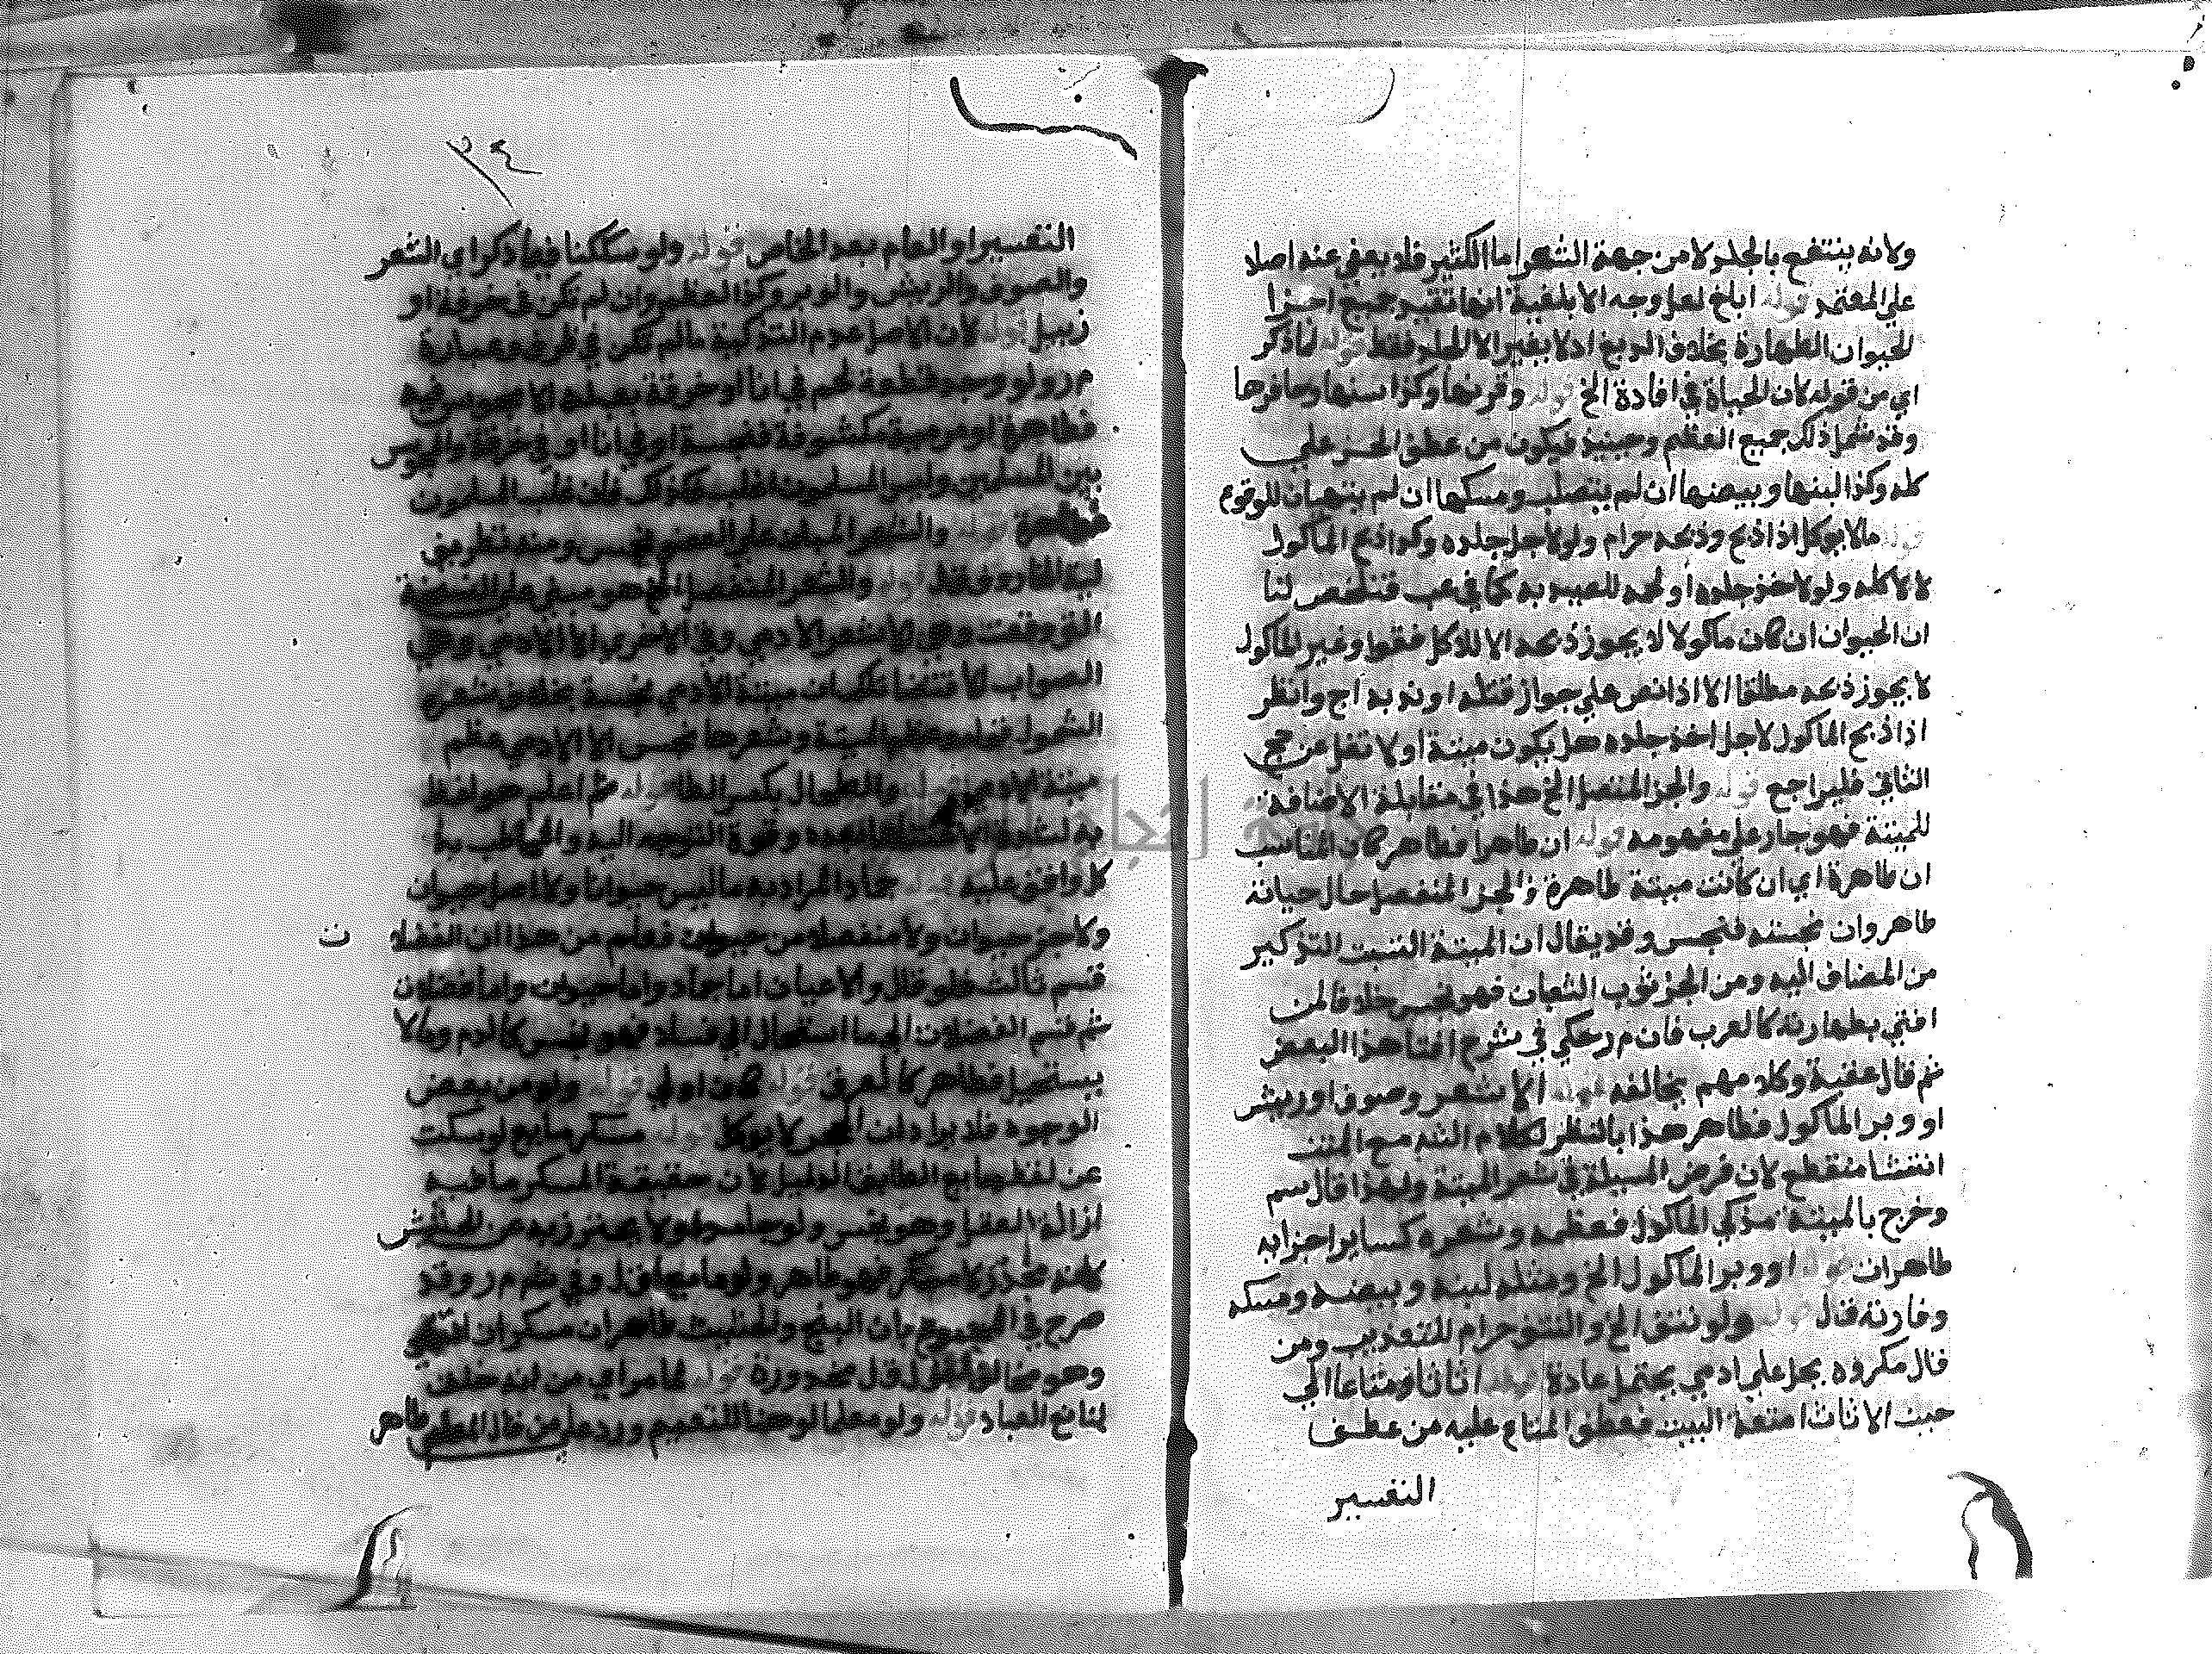 ولانه ينتفع بالجلد لا من جهة الشعر اما الكثير فلا يعفي عنه اصلا
علي المعتمد قوله ابلغ لعل وجه الابلغية انها تفيد جميع اجزا
الحيوان الطهارة بخلاف الدبغ اذ لا يفيد الا الجلد فقط قوله لما ذكر
اي من قوله لان الحياة في افادة الخ قوله وقرنها وكذا سنها وحافرها
وقد شمل ذلك جميع العظم وحينيذ فيكون من عطف الجز علي
كله وكذا لبنها وبيضها ان لم يتصلب ومسكها ان لم يتهيان للوقوع
قوله مالا يوكل اذا ذبح وذبحه حرام ولو لاجل جلده وكذا ذبح الماكول
لا لاكله ولو لاخذ جلده او لحمه للصيد به كما في عب فتلخص لنا
ان الحيوان ان كان ماكولا لا يجوز ذبحه الا للاكل فقط وغير الماكول
لا يجوز ذبحه مطلقا الا اذا نص علي جواز قتله او ندبه اج وانظر
اذا ذبح الماكول لاجل اخذ جلده هل يكون ميتة اولا نقل عن حج
الثاني فليراجع قوله والجز المنفصل الخ هذا في مقابلة الاضافة
للميتة فهو جار علي مفهومه قوله ان طاهرا فطاهر كان المناسب
ان طاهرة اي ان كانت ميتة طاهرة فالجز المنفصل حال حياته
طاهر وان نجسة فنجس وقد يقال ان الميتة اكتسبت التذكير
من المضاف اليه ومن الجز ثوب الثعبان فهو نجس خلافا لمن
افتي بطهارته كالعرب فان م ر حكي في شرح افتا هذا البعض
ثم قال عقبة وكلامهم يخالفه قوله الا شعر وصوف او ريش
او وبر الماكول فطاهر هذا بالنظر لكلام الش مع المتن
انتشا منقطع لان فرض المسيلة في شعر الميتة ولهذا قال سم
وخرج بالميتة مذكي الماكول فعظمه وشعره كساير اجزايه
طاهران قوله او وبر الماكول الخ ومثله لبنه وبيضه ومسكه
وفارته قال قوله ولو نتف الخ والنتف حرام للتعذيب ومن
قال مكروه يحل علي ادمي يحتمل عادة قوله اثاثا ومتاعا الي
حين الاثاث امتعة البيت فعطف المتاع عليه من عطف
التفسير
التفسير او العام بعد الخاص قوله ولو شككنا فيما ذكر اي الشعر
والصوف والريش والوبر وكذا العظم وان لم تكن في خرقة او
زبيل قوله لان الاصل عدم التذكية مالم تكن في ظرف وعبارة
م ر ولو وجد قطعة لحم في انا او خرقة ببلد لا مجوس فيه
فطاهرة او مرمية مكشوفة فنجسة او في انا او في خرقة والمجوس
بين المسلمين وليس المسلمون اغلب فكذلك فان غلب المسلمون
فطاهرة قوله والشعر المبان علي العضو نجس ومنه تظر مني
والشعر المنفصل الخ هو مبني علي النسخة
التي وقعت وهي الا شعر الادمي وفي الاخري الا الادمي وهي
الصواب لاقتضا تلك ان ميتة الادمي نجسة بخلاف شعره
الشمول قوله وعظم الميتة وشعرها نجس الا الادمي عظم
ميتة الادمي قوله والطوال بكسر الطا قوله ثم اعلم هو لفظ
به لشدة الاعتنا بما بعده وقوة التوجه اليه والمخاطب به
كل واقف عليه قوله جماد المراد به ما ليس حيوانا ولا اصل حيوان
ولا جز حيوان ولا منفصلا من حيوان فعلم من هذا ان الفضلات
قسم ثالث فلو قال والاعيان اما جماد واما حيوان واما فضلات
ثم قسم الفضلات الي ما استحال الي فساد فهو نجس كالدم ومالا
يستحيل فطاهر كالعرق قوله كان اولي قوله ولو من بعض
الوجوه فلا يرد ان الحجر لا يوكل قوله مسكر مايع لو سكت
عن لفظ مايع الطابق الدليل لان حقيقة المسكر ما فيه
ازالة العقل وهو نجس ولو جامدا ولا يحترز به عن الحشيش
لانه مخدر لا مسكر فهو طاهر ولو مايعا ق ل وفي شم م ر وقد
صرح في المجموع بان البنج والحشيش طاهران مسكران انتهي
وهو مخالف لقول ق ل مخدورة قوله لما مر اي من انه خلق
لمنافع العباد قوله ولو معلما لو هنا للتعميم ورد علي من قال المعلم طاهر